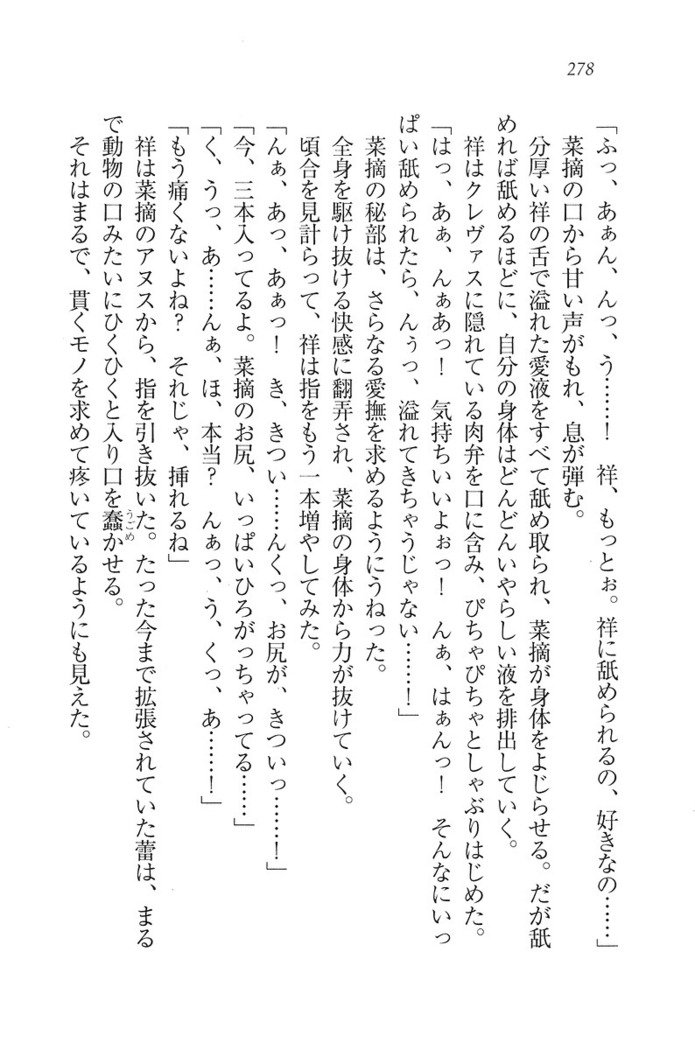 278
「ふっ、あぁん、んっ、う……！　祥、もっとぉ。祥に舐められるの、好きなの……」
菜摘の口から甘い声がもれ、息が弾む。
分厚い祥の舌で溢れた愛液をすべて舐め取られ、菜摘が身体をよじらせる。だが舐
めれば舐めるほどに、自分の身体はどんどんいやらしい液を排出していく。
祥はクレヴァスに隠れている肉弁を口に含み、ぴちゃぴちゃとしゃぶりはじめた。
「はっ、あぁ、んぁあっ！　気持ちいいよぉっ！　んぁ、はぁんっ！　そんなにいっ
ぱい舐められたら、んぅっ、溢れてきちゃうじゃない……！」
菜摘の秘部は、さらなる愛撫を求めるようにうねった。
全身を駆け抜ける快感に翻弄され、菜摘の身体から力が抜けていく。
頃合を見計らって、祥は指をもう一本増やしてみた。
「んぁ、あっ、あぁっ！　き、きつい……んくっ、お尻が、きついっ……！」
「今、三本入ってるよ。菜摘のお尻、いっぱいひろがっちゃってる……」
「く、うっ、あ……んぁ、ほ、本当？　んぁっ、う、くっ、あ……！」
「もう痛くないよね？　それじゃ、挿れるね」
祥は菜摘のアヌスから、指を引き抜いた。たった今まで拡張されていた蕾は、まる
で動物の口みたいにひくひくと入り口を蠢うごめかせる。
それはまるで、貫くモノを求めて疼いているようにも見えた。